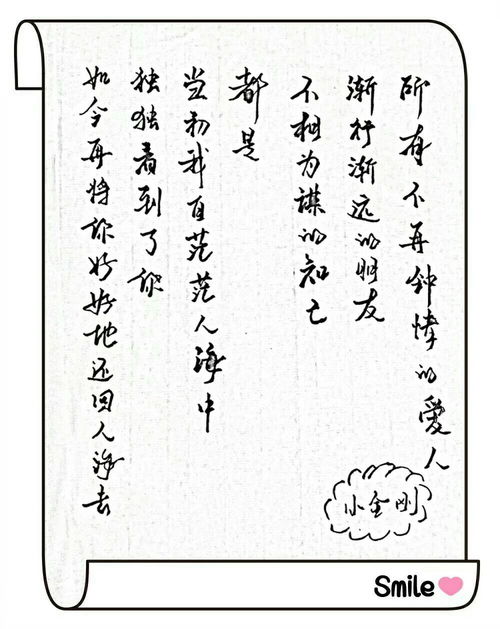 所有不再钟情的愛人
渐行渐远的朋友
不相为謀的知己
都是
当初我自茫茫人海中
独独看到了你
如今再将你好好地还回人海去
小金刚
Smile